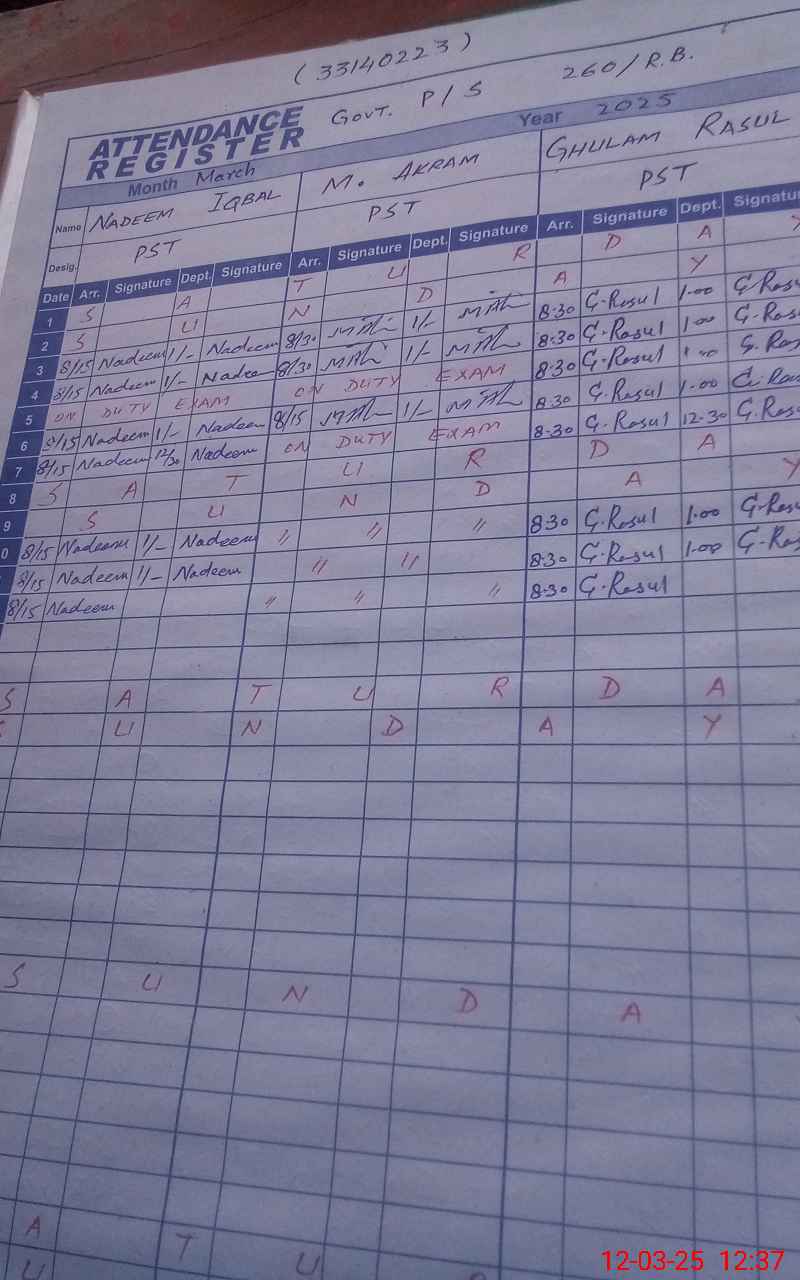 (33140223)
ATTENDANCE REGISTER GOVT. P/S 260/R.B.
Month March Year 2025
Name NADEEM IQBAL M. AKRAM GHULAM RASUL
Desig. PST PST PST
Date Arr. Signature Dept. Signature Arr. Signature Dept. Signature Arr. Signature Dept. Signatu
1 S A T U R D A Y
2 S U N D A Y
3 8/15 Nadeem 1/- Nadeem 8/30 1/- 8-30 G.Rasul 1.00 G.Rasu
4 8/15 Nadeem 1/- Nadee 8/30 1/- 8-30 G.Rasul 1.00 G.Rasu
5 ON DUTY EXAM ON DUTY EXAM 8-30 G.Rasul G.Ras
6 8/15 Nadeem 1/- Nadeem 8/15 1/- 8-30 G.Rasul 1.00 G.Ras
7 8/15 Nadeem 12/30 Nadeem ON DUTY EXAM 8-30 G.Rasul 12-30 G.Rasu
8 S A T U R D A Y
9 S U N D A
0 8/15 Nadeem 1/- Nadeem " " " 8-30 G.Rasul 1.00 G.Rasu
8/15 Nadeem 1/- Nadeem " " 8-30 G.Rasul 1.00 G.Ras
8/15 Nadeem " " " 8-30 G.Rasul
S A T U R D A
S U N D A Y
S U N D A
A T U
U
12-03-25 12:37